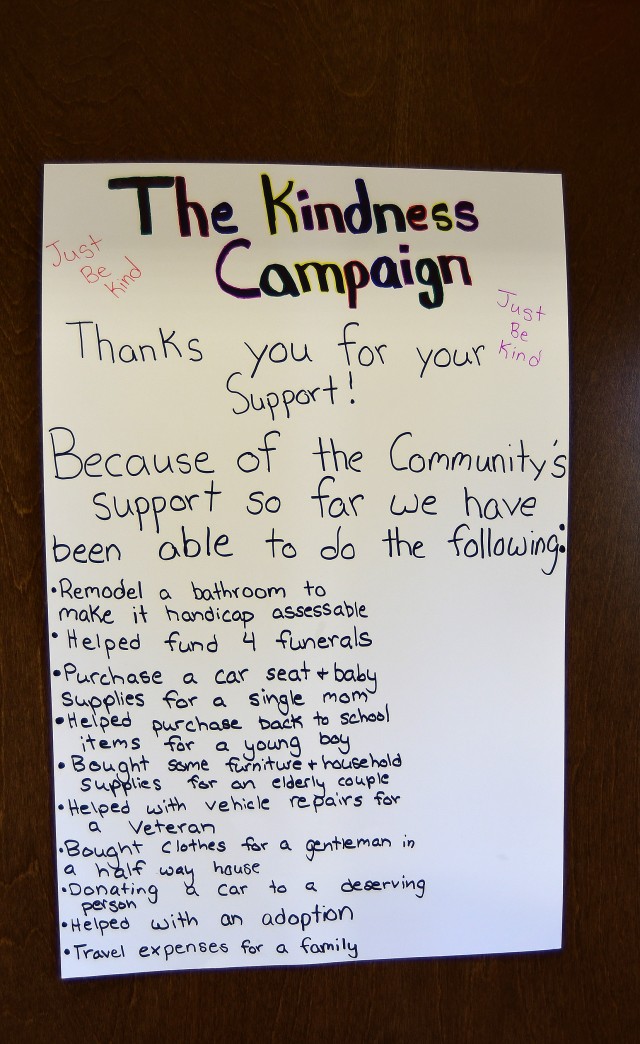 The Kindness
Campaign
Just
Be
Kind
Just
Be
Kind
Thanks you for your
Support!
Because of the Community's
support so far we have
been able to do the following:
•Remodel a bathroom to
make it handicap assessable
•Helped fund 4 funerals
•Purchase a car seat + baby
supplies for a single mom
•Helped purchase back to school
items for a young boy
•Bought some furniture + household
supplies for an elderly couple
•Helped with vehicle repairs for
a Veteran
•Bought clothes for a gentleman in
a half way house
•Donating a car to a deserving
person
•Helped with an adoption
•Travel expenses for a family